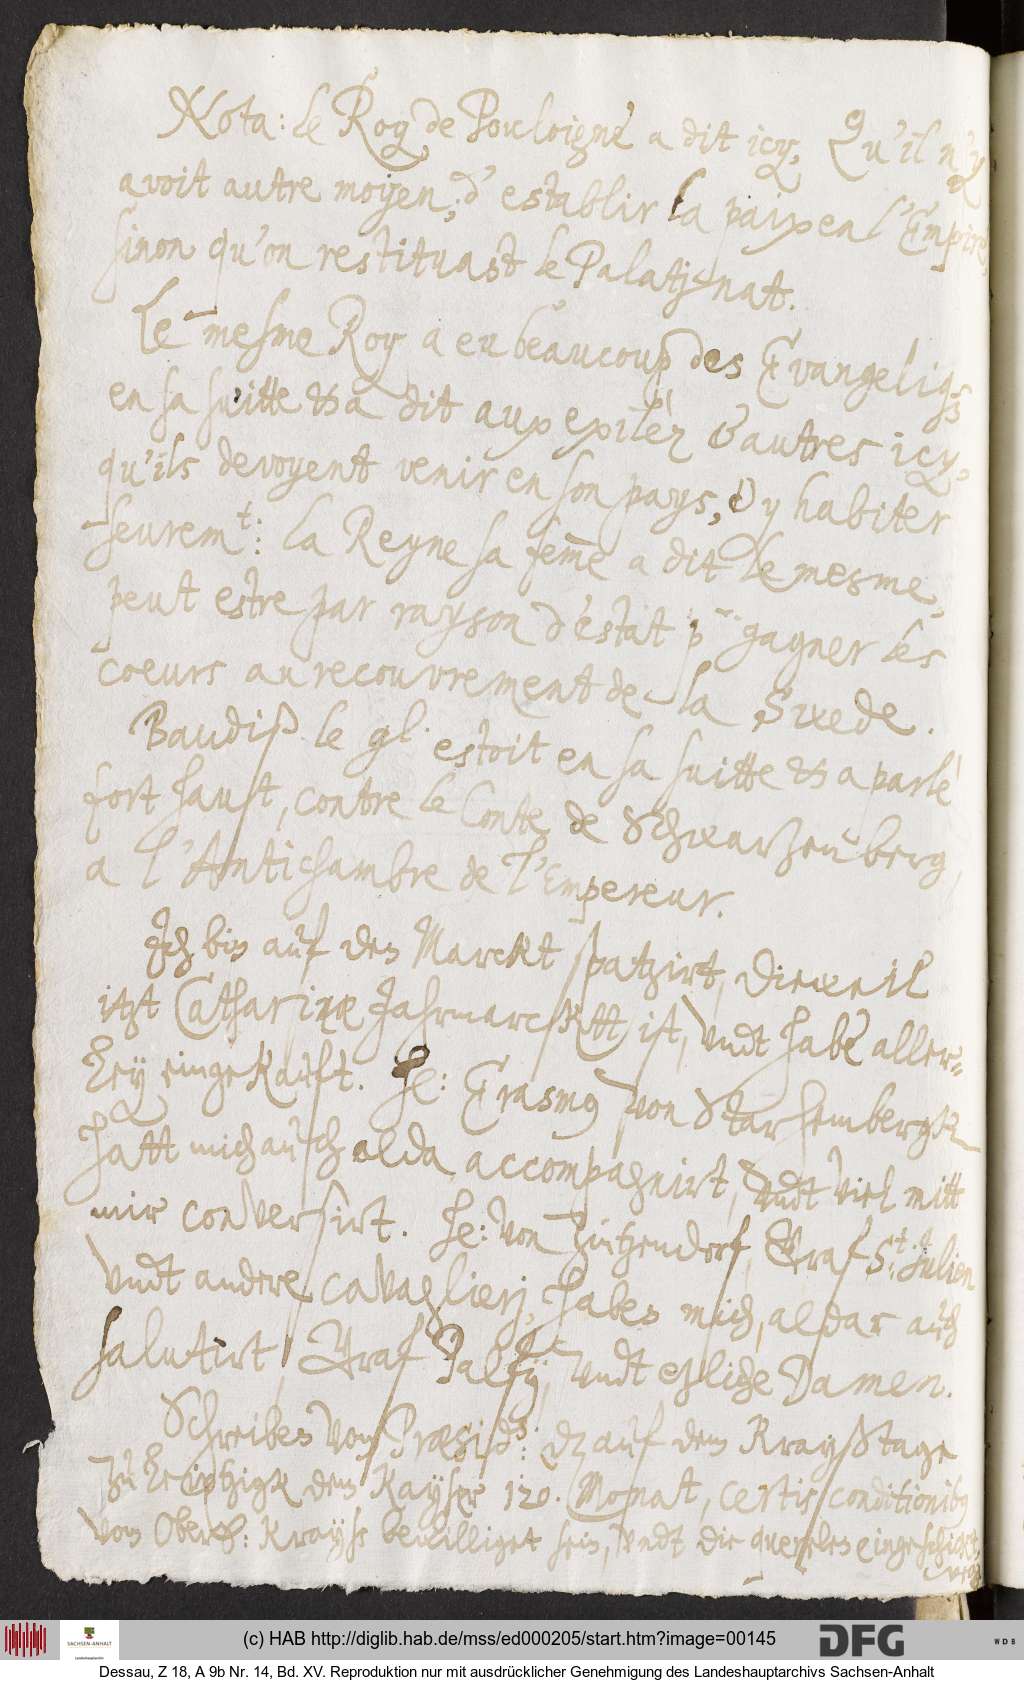 Nota: le Roy de Pouloigne a dit icy, Qu'il n'y
avoit autre moyen, d'establir la paix en l'Empire,
sinon qu'on restituast le Palatinat.
Le mesme Roy a eu beaucoup des Evangeliq3
en sa suitte & a dit aux exiléz & autres icy,
qu'ils devoyent venir en son pays, & y habiter
seurem.t: la Reyne sa fem̃e a dit le mesme,
peut estre par rayson d'estat p.r gagner les
coeurs au recouvrement de la Svede.
Baudiß le gl. estoit en sa suitte & a parlé
fort haust, contre le Conte de Schwarzenberg,
a l'Antichambre de l'Empereur.
Ich bin auf den Marckt spatzirt, dieweil
itzt Catharinæ Jahrmarckt ist, vndt habe aller-
ley eingekauft. He: Erasmg von Starhembergk
hatt mich auch alda accompagnirt, vndt viel mitt
mir conversirt. He: von Zintzendorf, Graf S:t Julien
vndt andere cavaglierj, haben mich, aldar auch
salutirt, Graf Palfÿ, vndt etzliche Damen.
Schreiben von Præsid:: dz auf dem Kraystage
zu Leiptzigk dem Kayser 120. Monat, certis conditionibg
vom Obers: Krayß bewilliget sein, vndt die querelen eingeschickt,
(c) HAB http://diglib.hab.de/mss/ed000205/start.htm?image=00145
SACHSEN-ANHALT
DFG
WDB
Dessau, Z 18, A 9b Nr. 14, Bd. XV. Reproduktion nur mit ausdrücklicher Genehmigung des Landeshauptarchivs Sachsen-Anhalt